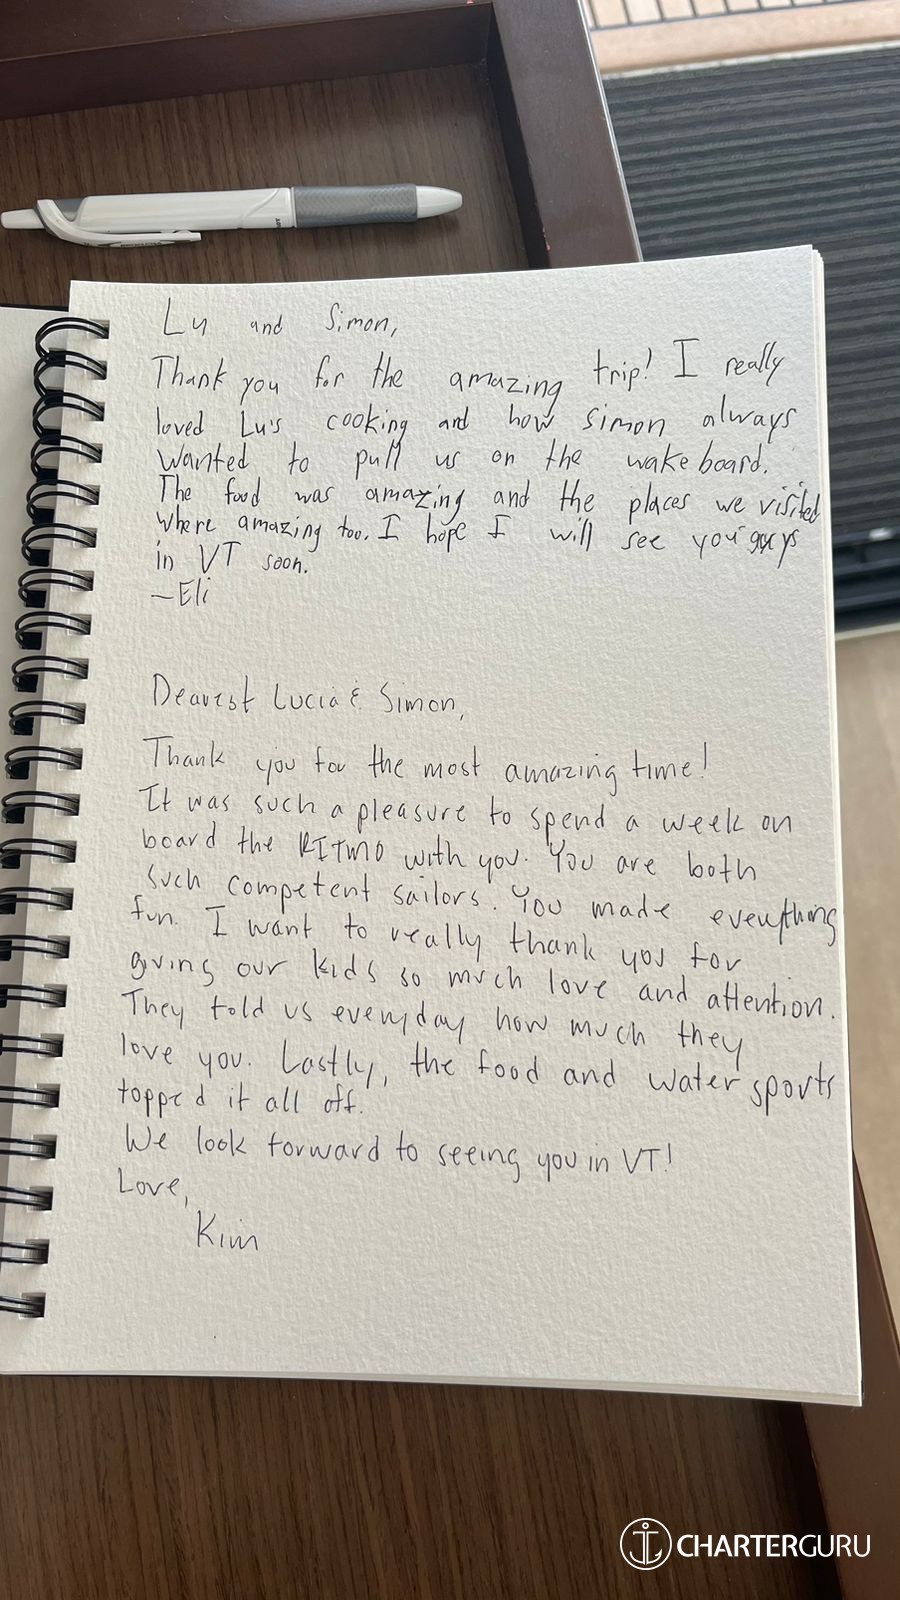 Lu and Simon,
Thank you for the amazing trip! I really
loved Lu's cooking and how simon always
wanted to pull us on the wake board.
The food was amazing and the places we visited
where amazing too. I hope I will see you guys
in VT soon.
—Eli
Dearest Lucia & Simon,
Thank you for the most amazing time!
It was such a pleasure to spend a week on
board the RITMO with you. You are both
such competent sailors. You made everything
fun. I want to really thank you for
giving our kids so much love and attention.
They told us everyday how much they
love you. Lastly, the food and water sports
topped it all off.
We look forward to seeing you in VT!
Love,
Kim
CHARTERGURU